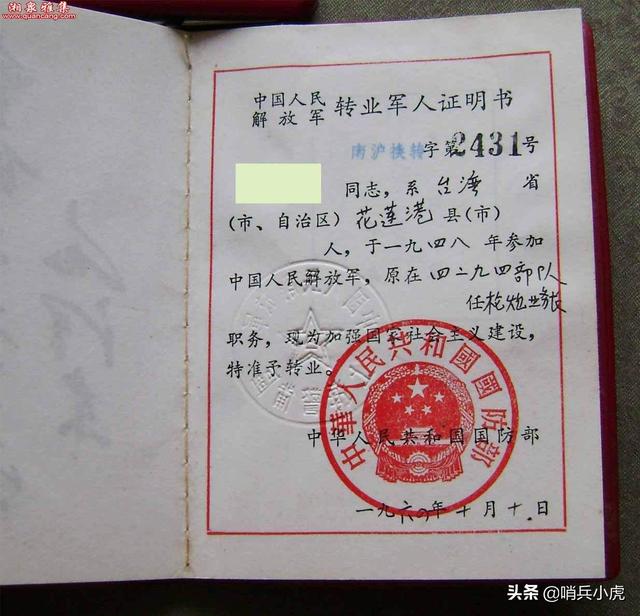 湘泉雅集
www.quancang.com
中国人民
解放军 转业军人证明书
南沪换转字第2431号
同志，系台湾省
（市、自治区）花莲港县（市）
人，于一九四八年参加
中国人民解放军，原在四二九四部队
任枪炮业务长
职务，现为加强国家社会主义建设，
特准予转业。
中华人民共和国国防部
中華人民共和國國防部
一九六〇年十月十日
头条 @哨兵小虎